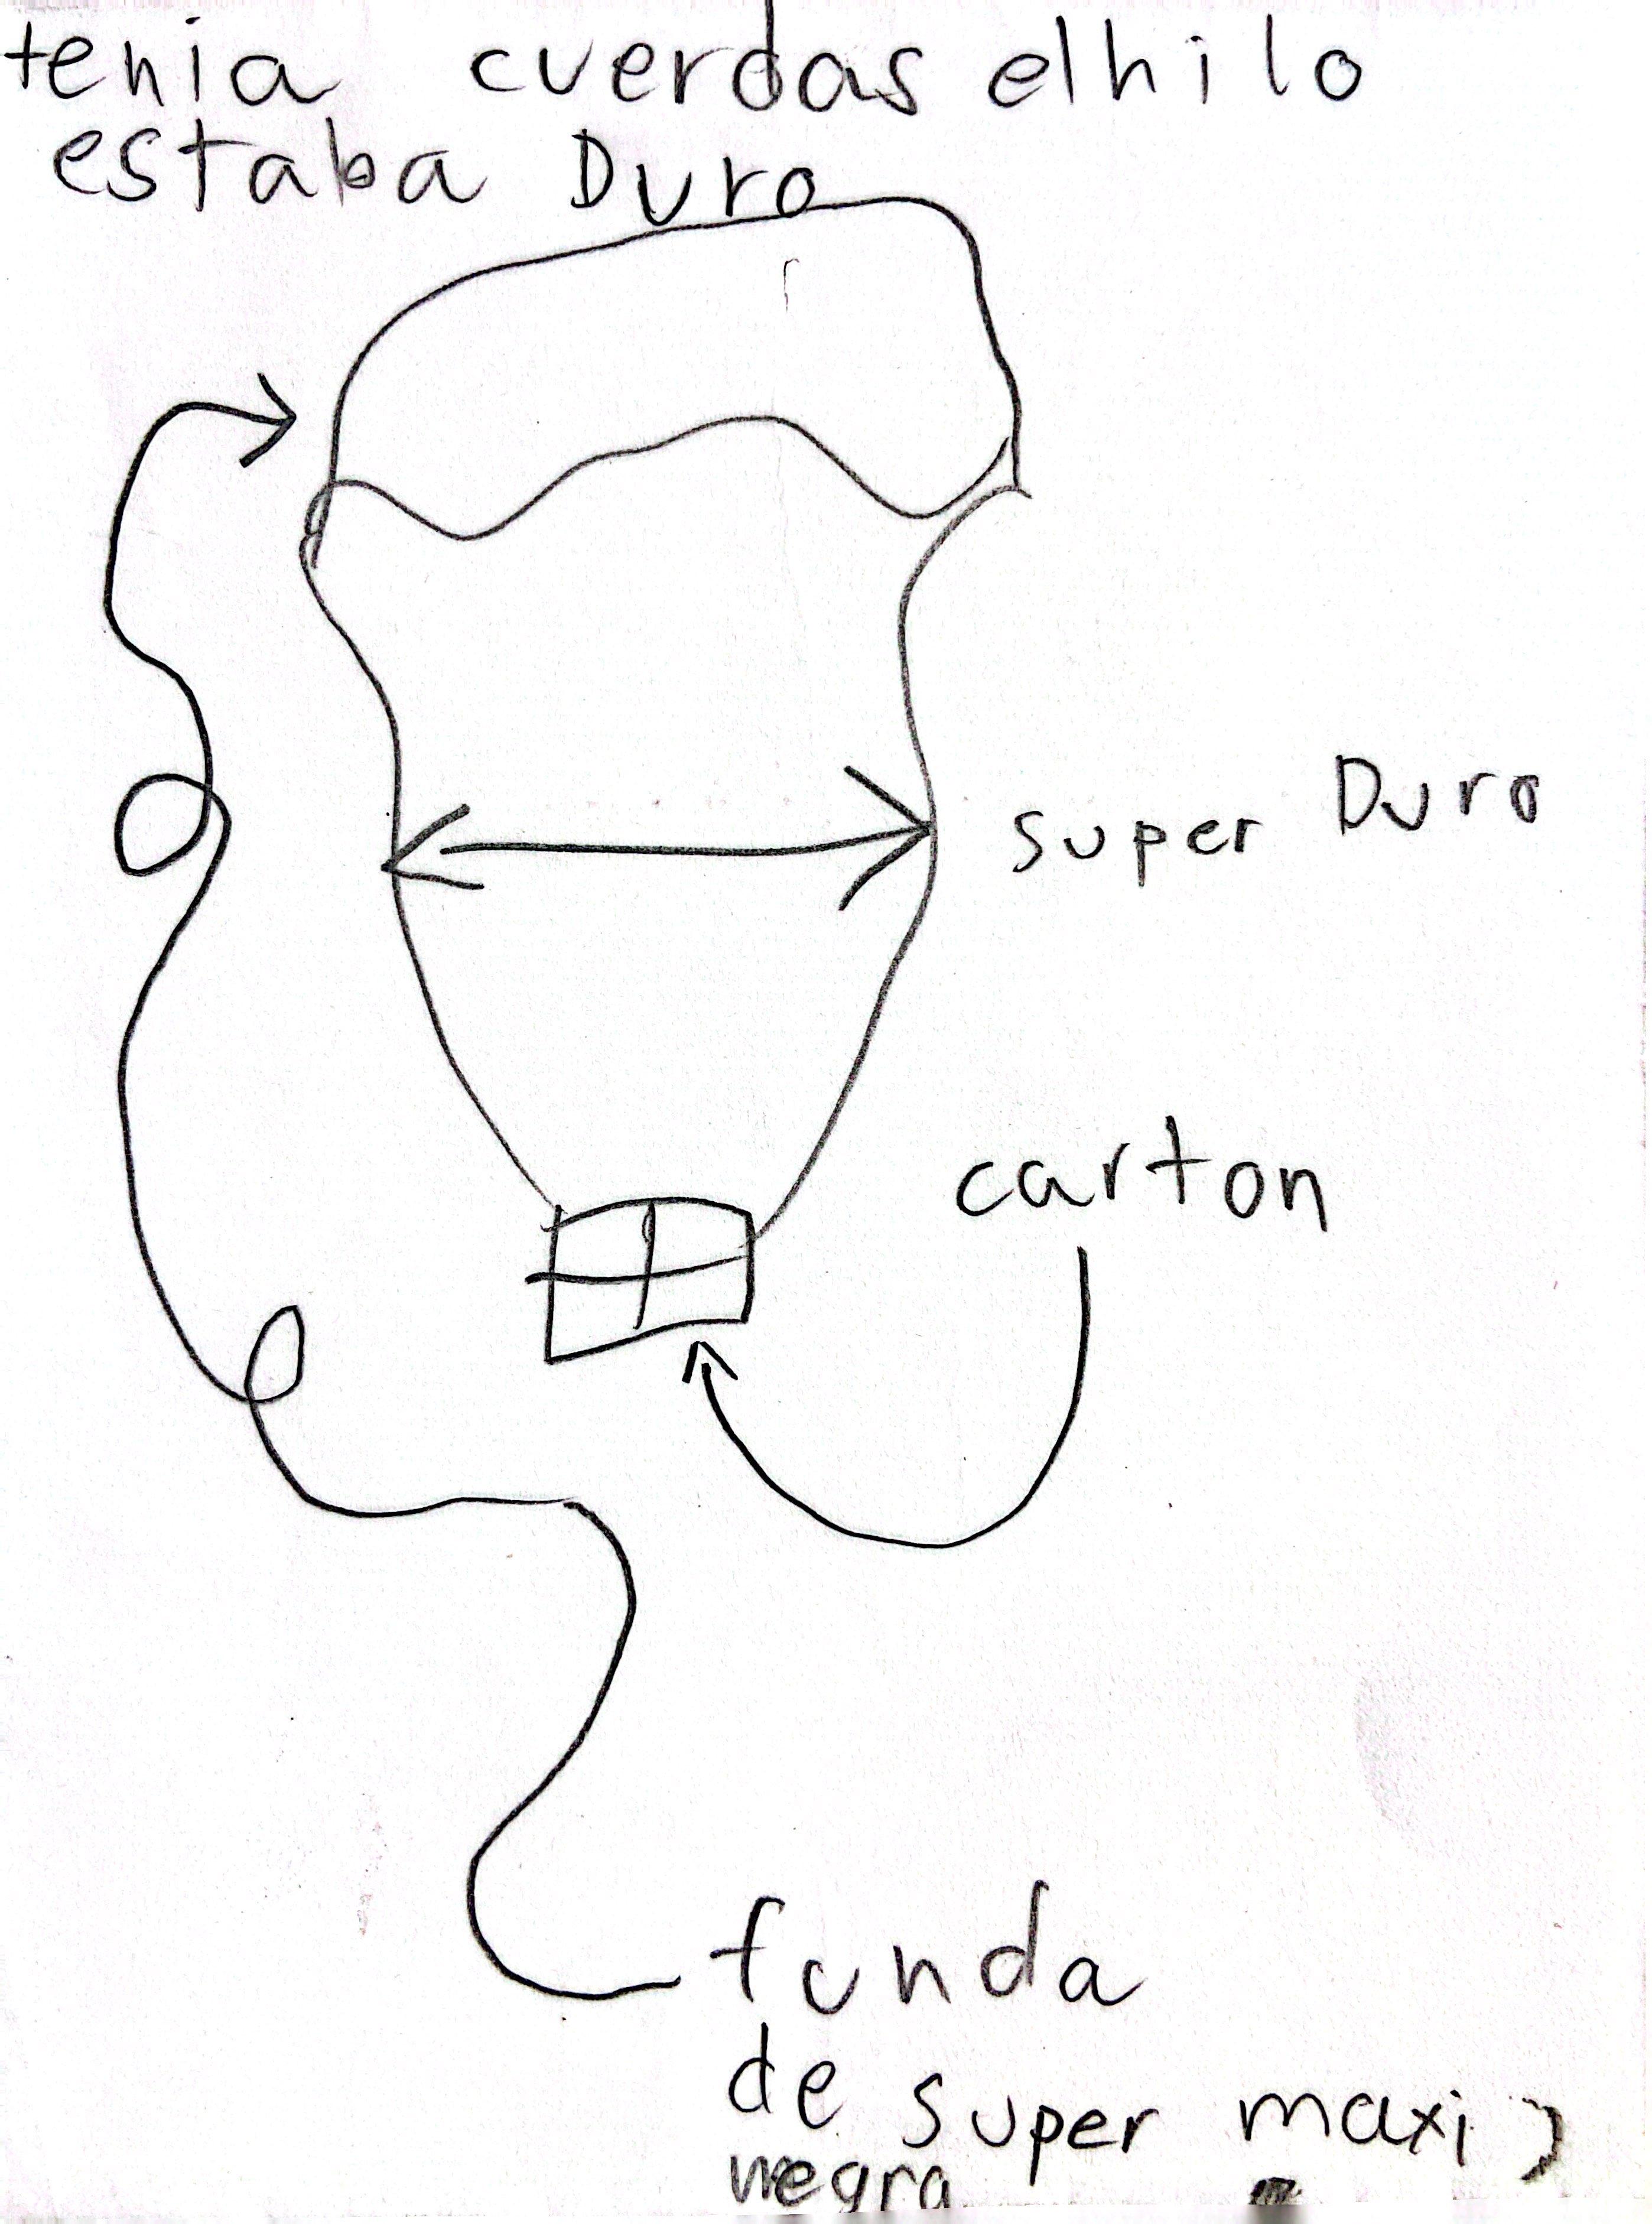 tenia cuerdas el hilo
estaba Duro
super Duro
carton
funda
de super maxi
negra